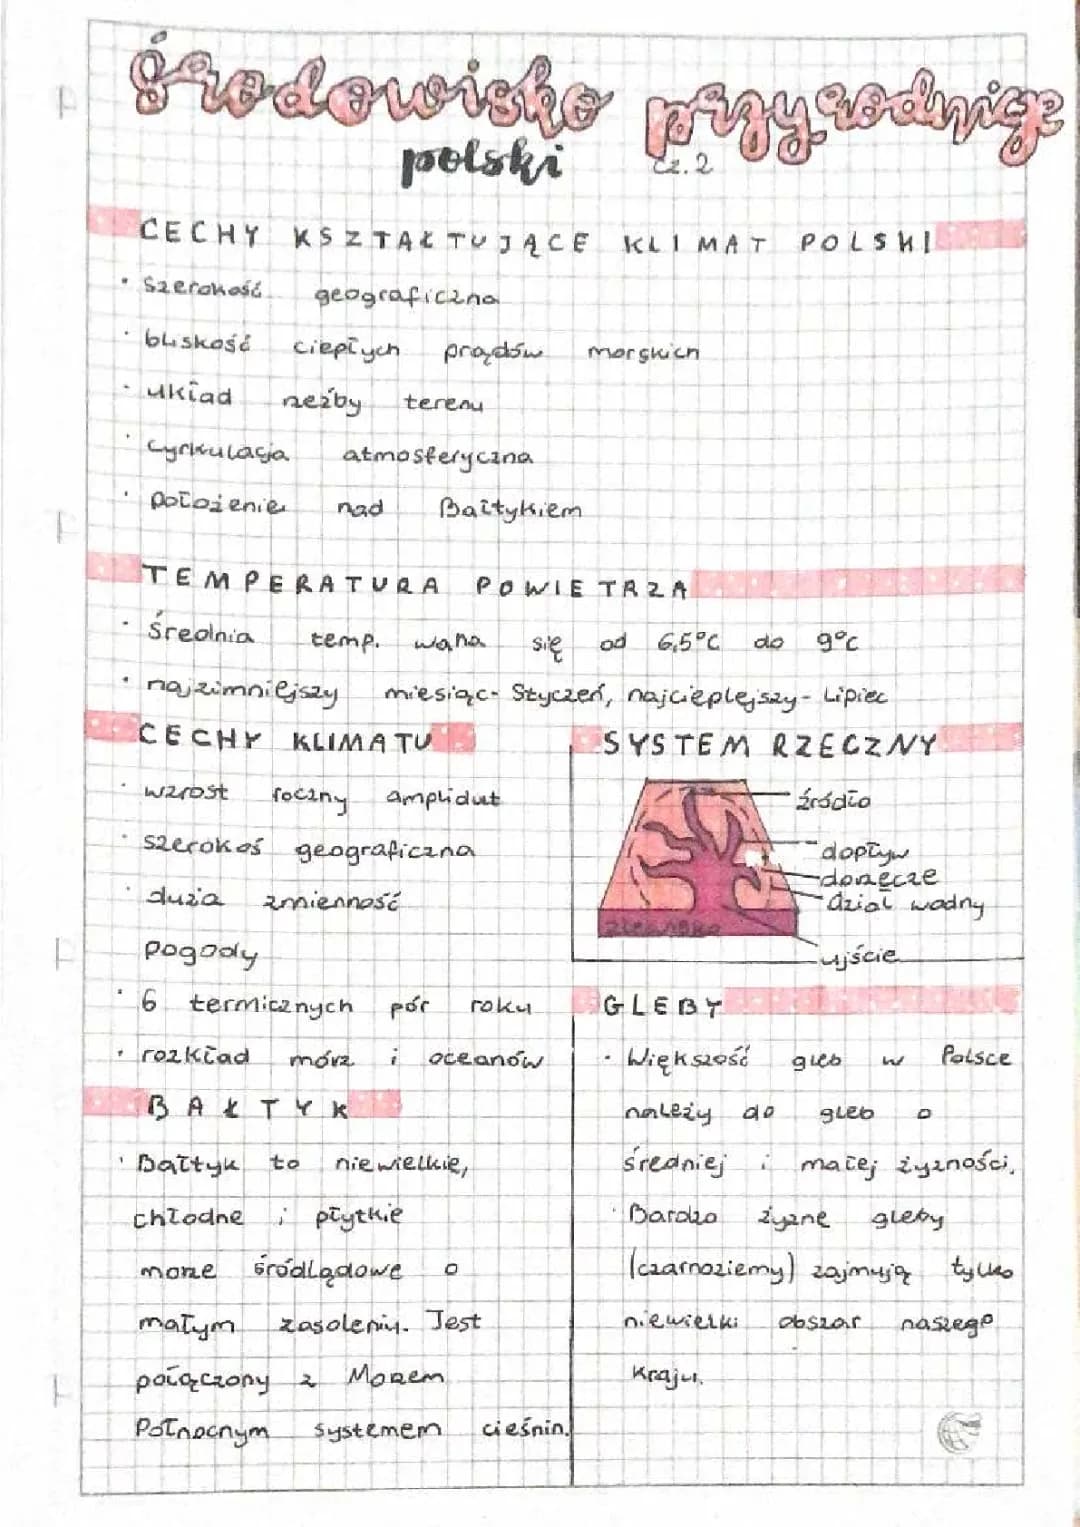 środowisko przyrodnicze
polski cz.2
CECHY KSZTAŁTUJĄCE KLIMAT POLSKI
· Szerokość geograficzna
· bliskość ciepłych prądów morskich
· układ rzeźby terenu
· Cyrkulacja atmosferyczna
· położenie nad Bałtykiem
TEMPERATURA POWIETRZA
· Średnia temp. waha się od 6,5°C do 9°C
· najzimniejszy miesiąc- Styczeń, najcieplejszy- Lipiec
CECHY KLIMATU
· wzrost roczny amplidut
· szerokoś geograficzna
· duża zmienność
pogody
· 6 termicznych pór roku
· rozkład mórz i oceanów
BAŁTYK
· Bałtyk to niewielkie,
chłodne i płytkie
morze śródlądowe o
małym zasoleniu. Jest
połączony z Morzem
Północnym systemem cieśnin.
SYSTEM RZECZNY
źródło
dopływ
dorzecze
dział wodny
zlewisko
ujście
GLEBY
· Większość gleb w Polsce
należy do gleb o
średniej i małej żyzności.
· Bardzo żyzne gleby
(czarnoziemy) zajmują tylko
niewielki obszar naszego
kraju.